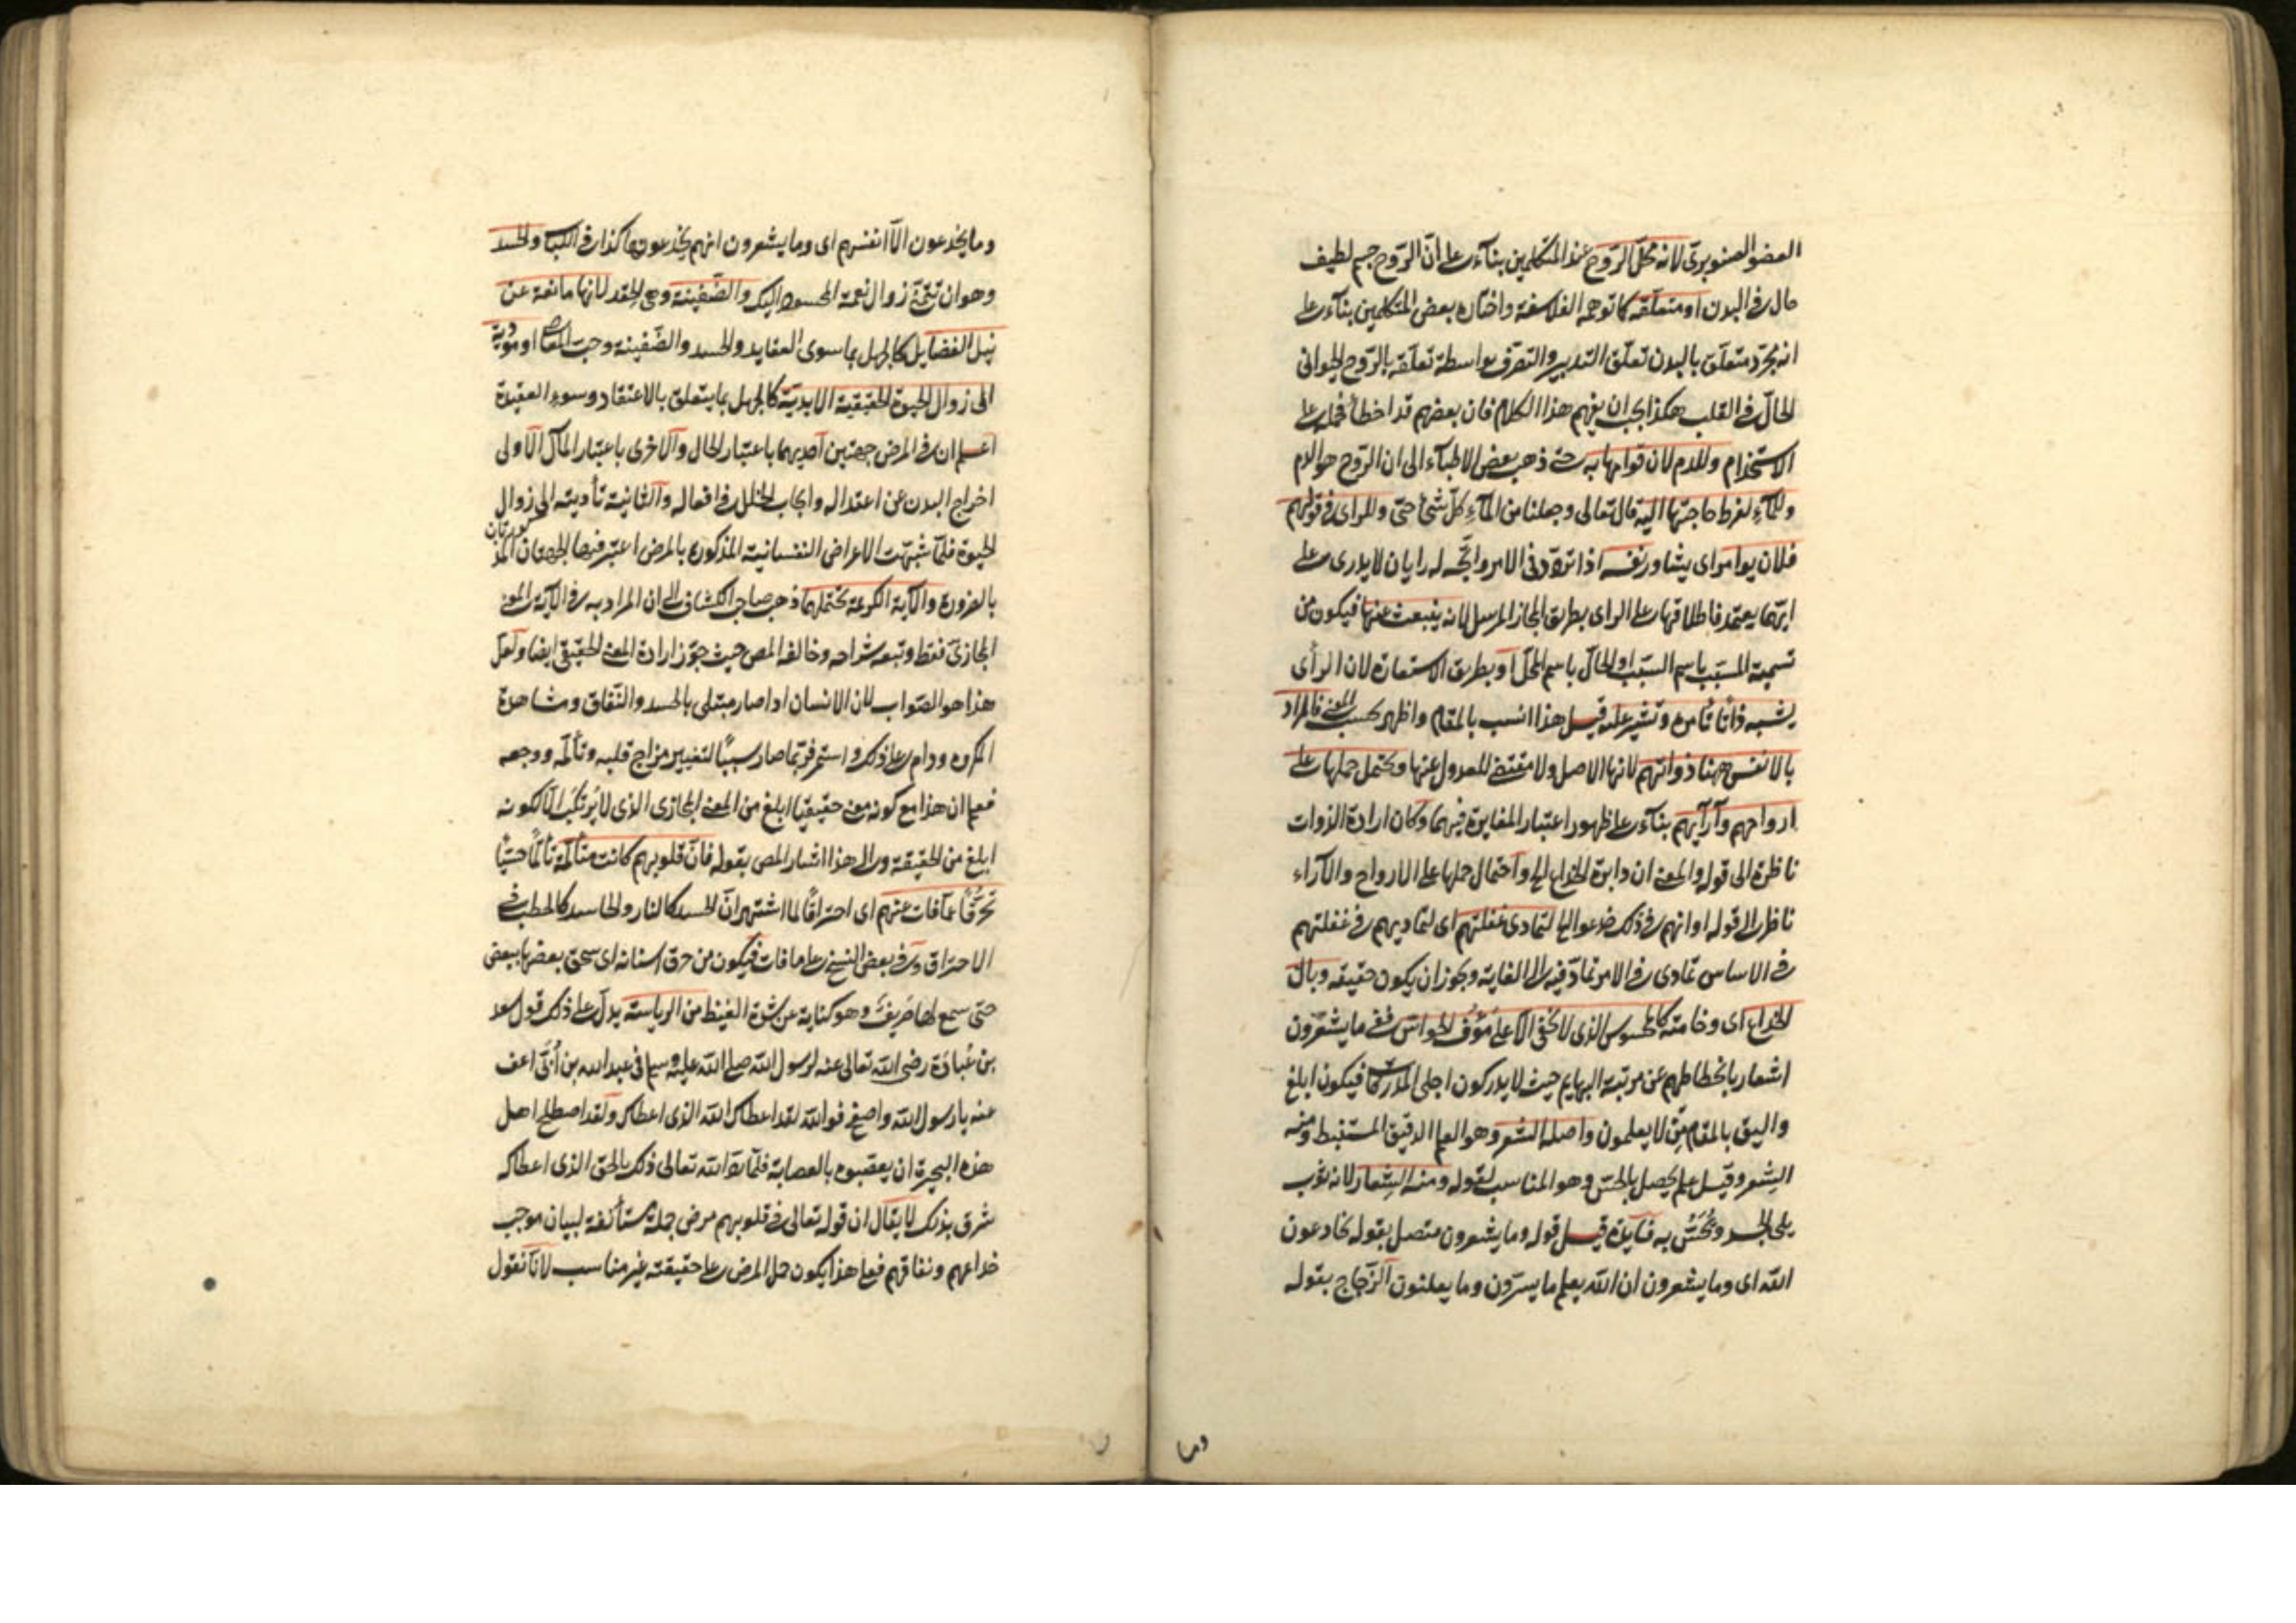 العضو الصنوبرى لانه محل الروح عند المتكلمين بناء على ان الروح جسم لطيف
حال فى البدن او متعلقه كما توهمه الفلاسفة واختاره بعض المتكلمين بناء على
انه مجرد متعلق بالبدن تعلق التدبير والتصرف بواسطة تعلقه بالروح الحيوانى
الحال فى القلب هكذا يجب ان يفهم هذا الكلام فان بعضهم قد اخطأ فحمله على
الاستخدام وللدم لان قوامها به حتى ذهب بعض الاطباء الى ان الروح هو الدم
وللماء لفرط حاجتها اليه قال تعالى وجعلنا من الماء كل شئ حى وللراى فى قولهم
فلان يوامر اى يشاور نفسه اذا تردد فى الامر واتجه له رايان لا يدرى على
ايهما يعتمد فاطلاقها على الراى بطريق المجاز المرسل لانه ينبعث عنها فيكون من
تسمية المسبب باسم السبب او الحال باسم المحل او بطريق الاستعارة لان الرأى
يشبه ذاتا تأمره وتشير عليه قيل هذا انسب بالمقام واظهر بحسب المعنى فالمراد
بالانفس ههنا ذواتهم لانها الاصل ولا مقتضى للعدول عنها ويحتمل حملها على
ارواحهم وآرائهم بناء على ظهور اعتبار المغايرة فيهما وكان ارادة الذوات
ناظرة الى قوله والمعنى ان دائرة الخداع الخ واحتمال حملها على الارواح والآراء
ناظر الى قوله او انهم فى ذلك خدعوا الخ لتمادى غفلتهم اى لتماديهم فى غفلتهم
فى الاساس تمادى فى الامر تماد فيه الى الغاية ويجوز ان يكون حقيقه وبال
الخداع اى وخامته كالمحسوس الذى لا يخفى الا على مؤف الحواس ففى ما يشعرون
اشعار بانحطاطهم عن مرتبة البهايم حيث لا يدركون اجلى المدركات فيكون ابلغ
واليق بالمقام من لا يعلمون واصله الشعر وهو العلم الدقيق المستنبط ومنه
الشعر وقيل علم يحصل بالحس وهو المناسب لقوله ومنه الشعار لانه ثوب
يلى الجسد ويحس به فايدة قيل قوله وما يشعرون متصل بقوله يخادعون
الله اى وما يشعرون ان الله يعلم ما يسرون وما يعلنون الزجاج بقوله
وما
وما يخدعون الا انفسهم اى وما يشعرون انهم يخدعونها كذا فى اللباب والحسد
وهو ان تتمنى زوال نعمة المحسود اليك والضغينة وهى الحقد لانها مانعة عن
نيل الفضايل كالجهل بما سوى العقايد والحسد والضغينة وحب المعاصى او مؤدية
الى زوال الحيوة الحقيقية الابدية كالجهل بما يتعلق بالاعتقاد وسوء العقيدة
اعلم ان فى المرض جهتين احديهما باعتبار الحال والاخرى باعتبار المآل الاولى
اخراج البدن عن اعتداله وايجاب الخلل فى افعاله والثانية تأديته الى زوال
الحيوة فلما شبهت الاعراض النفسانية المذكورة بالمرض اعتبر فيها الجهتان المذكورتان
بالضرورة والآية الكريمة تحتملهما ذهب صاحب الكشاف الى ان المراد به فى الآية المعنى
المجازى فقط وتبعه شراحه وخالفه المص حيث جوز ارادة المعنى الحقيقى ايضا ولعل
هذا هو الصواب لان الانسان اذا صار مبتلى بالحسد والنفاق ومشاهدة
المكروه ودام على ذلك واستمر فربما صار سببا لتغيير مزاج قلبه وتألمه ووجعه
فعلم ان هذا مع كونه معنى حقيقيا ابلغ من المعنى المجازى الذى لا يرتكب الا لكونه
ابلغ من الحقيقة والى هذا اشار المص بقوله فان قلوبهم كانت متألمة تألما حسيا
تحرقا عما فات عنهم اى احتراقا لما اشتهر ان الحسد كالنار والحاسد كالحطب فى
الاحتراق وفى بعض النسخ على ما فات فيكون من حرق اسنانه اى سحق بعضها ببعض
حتى سمع لها صريف وهو كناية عن شدة الغيظ من الرياسة يدل على ذلك قول سعد
بن عبادة رضى الله تعالى عنه لرسول الله صلى الله عليه وسلم فى عبد الله بن أبى اعف
عنه يا رسول الله واصفح فوالله لقد اعطاك الله الذى اعطاك ولقد اصطلح اهل
هذه البحيرة ان يعصبوه بالعصابة فلما رد الله تعالى ذلك بالحق الذى اعطاكه
شرق بذلك لا يقال ان قوله تعالى فى قلوبهم مرض جملة مستأنفة لبيان موجب
خداعهم ونفاقهم فعلى هذا يكون حمل المرض على حقيقته غير مناسب لانا نقول